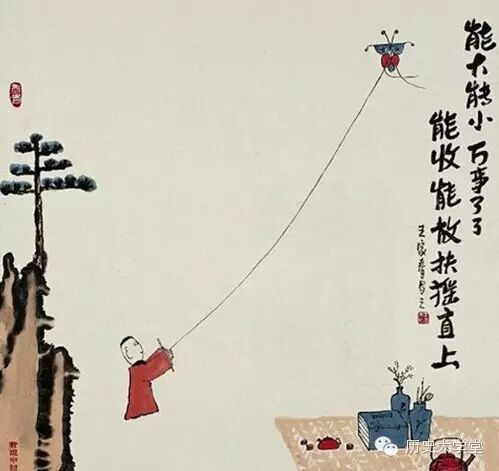 能大能小万事了了
能收能放扶摇直上
王家春写之
历史大学堂